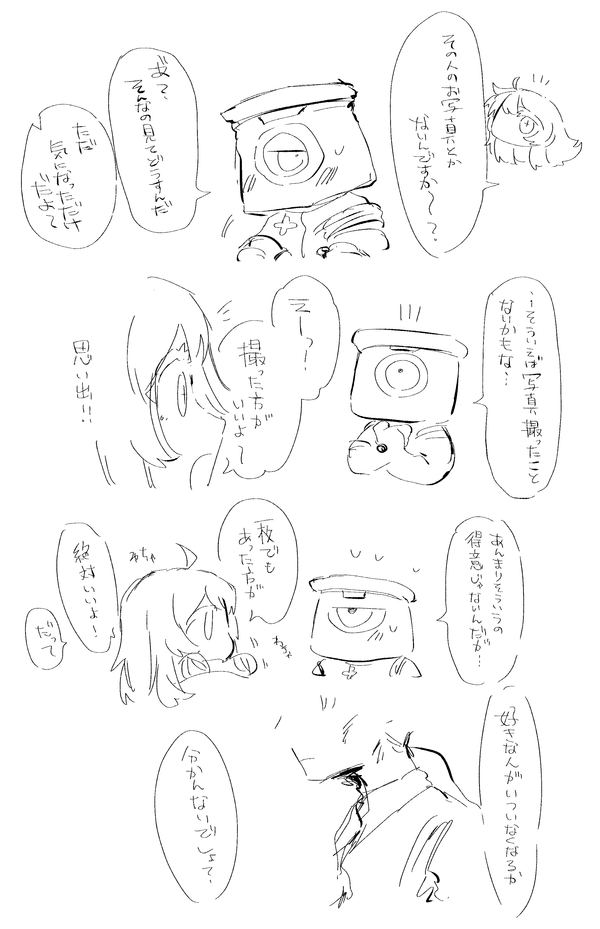 その人のお写真とか
ないんですか〜？
あ？、
そんなの見てどうすんだ
ただ
気になっただけ
だよ？
…そういえば写真撮ったこと
ないかもな…
えーっ！
撮った方が
いいよ〜
思い出!!
あんまりそういうの
得意じゃないんだが…
一枚でも
あった方が
ねちゃ
ねちゃ
絶対いいよ！
だって
好きな人がいついなくなるか
分かんないでしょ？